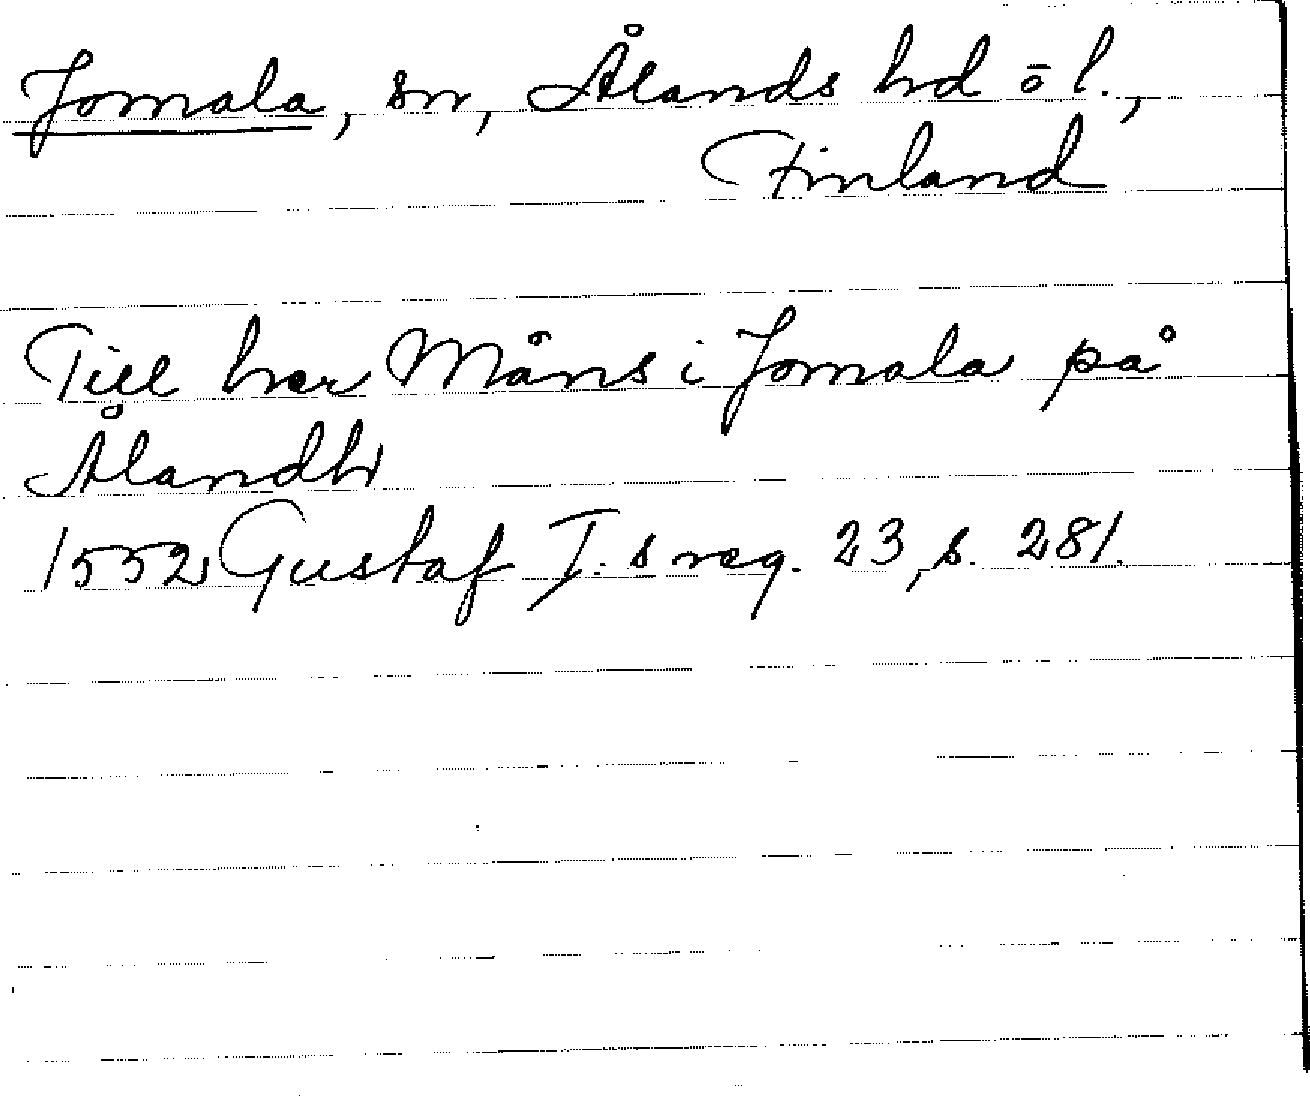 Jomala, sn, Ålands hd ö l.,
Finland
Till her Måns i Jomala på
Ålandh
1552 Gustaf I.s reg. 23, s. 281.